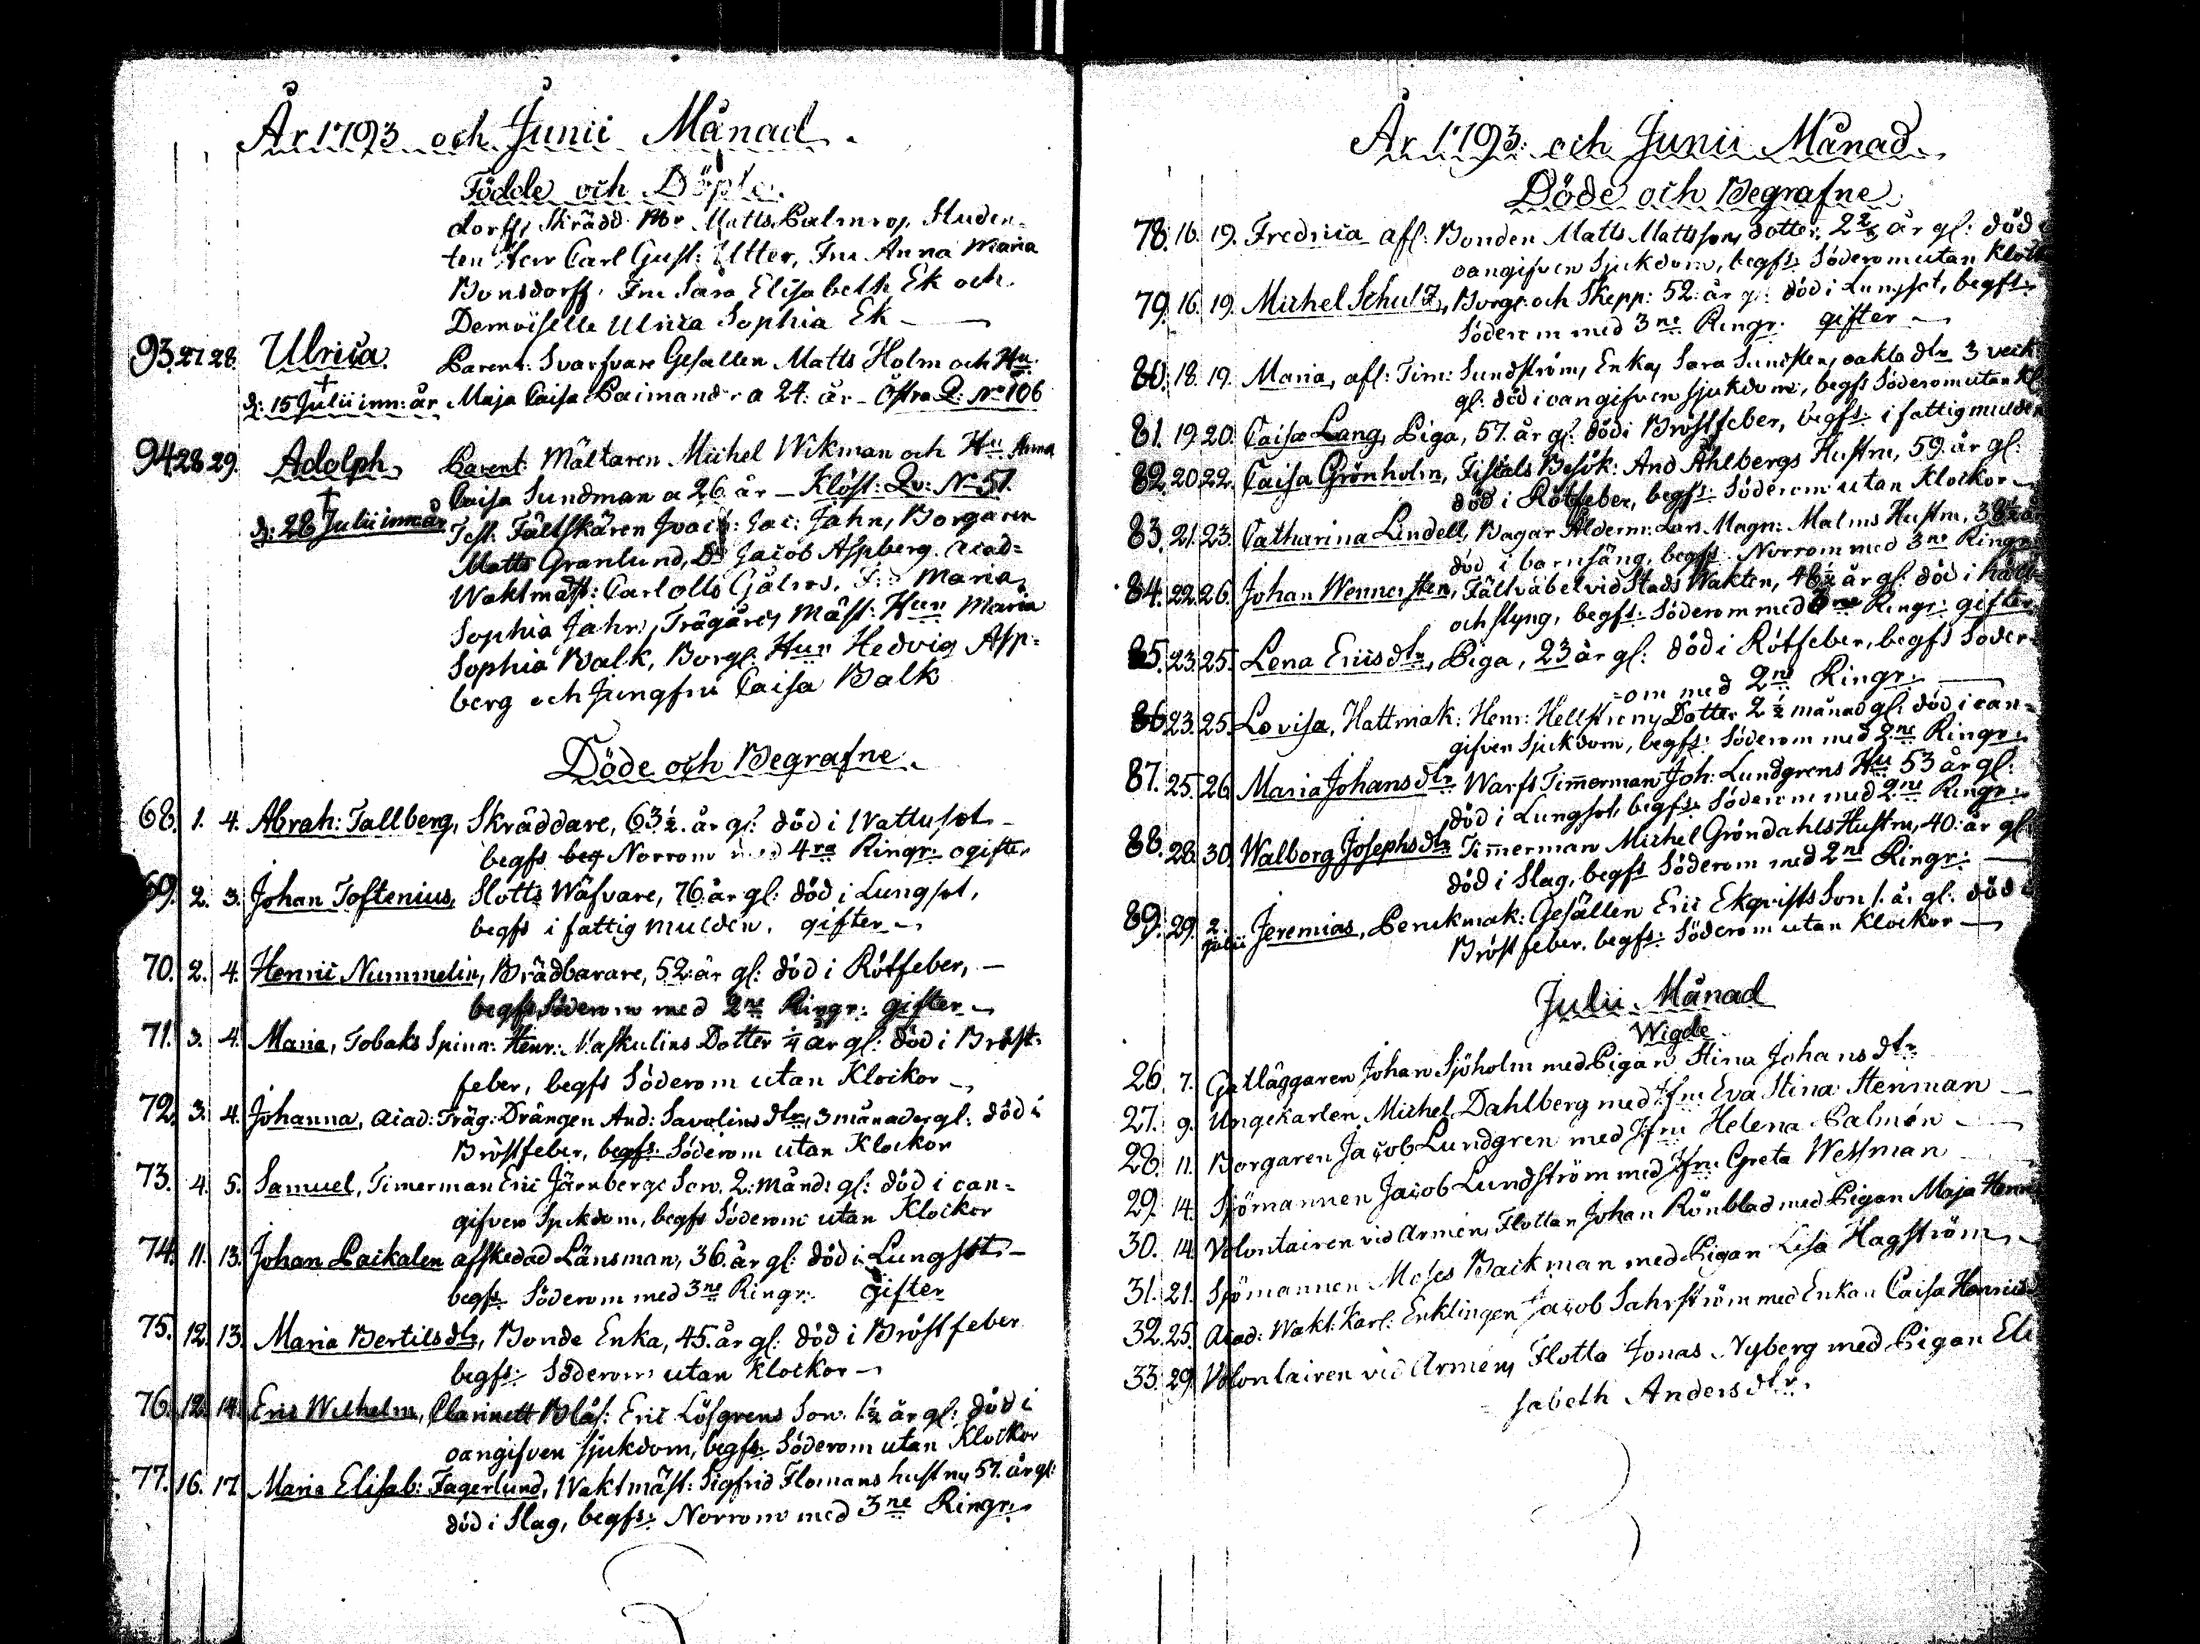 År 1793 och Junii Månad.
Födde och Döpte.
dorff, Skrädd: Mr Matts Palmros, Studen-
ten Herr Carl Gust: Utter, Fru Anna Maria
Bonsdorff, Fru Sara Elisabeth Ek och
Demoiselle Ulrica Sophia Ek —
93. 27. 28. Ulrica. Parent: Svarfvare Gesällen Matts Holm och Hu:
† d: 15 Julii inn: år Maja Caisa Paimander a 24: år - Östra Q: No 106
94. 28. 29. Adolph, Parent: Mältaren Michel Wikman och Hu: Anna
Caisa Sundman a 26 år — Klöst: Qv: N 51.
† d: 28 Julii inn: år Test: Fältskären Joach: Jac: Jahn, Borgaren
Matts Granlund, Do Jacob Aspberg, Acad=
Waktmäst: Carl Olls Gjälros, Fru Maria
Sophia Jahn, Trägårds Mäst: Hun Maria
Sophia Balk, Borg: Hun Hedvig Asp=
berg och Jungfru Caisa Balk
Döde och Begrafne.
68. 1. 4. Abrah: Tallberg, Skräddare, 63½ år gl: död i Wattusot —
begfs beg Norrom med 4ra Ringr: ogifter
69. 2. 3. Johan Toftenius, Slotts Wäfvare, 76 år gl: död i Lungsot,
begfs i fattig mulden. gifter —
70. 2. 4. Henric Nummelin, Brädbarare, 52: år gl: död i Rötfeber, —
begfs Söderom med 2ne Ringr: gifter —
71. 3. 4. Maria, Tobaks Spinn: Henr: Maskulins Dotter ¼ år gl: död i Bröst-
feber, begfs Söderom utan Klockor —
72. 3. 4. Johanna, Acad: Träg: Drängen And: Savolins dtr, 3 månader gl: död i
Bröstfeber, begfs: Söderom utan Klockor
73. 4. 5. Samuel, Timerman Eric Järnbergs Son. 2: månd: gl: död i oan=
gifven Sjukdom, begfs Söderom utan Klockor
74. 11. 13. Johan Paikalen afskedad Länsman, 36. år gl: död i Lungsot —
begfs Söderom med 3ne Ringr: Gifter
75. 12. 13. Maria Bertils dtr, Bonde Enka, 45. år gl: död i Bröstfeber
begfs: Söderom utan Klockor —
76. 12. 14. Eric Wilhelm, Clarinett Blås: Eric Löfgrens Son. 1½ år gl: död i
oangifven sjukdom, begfs: Söderom utan Klockor
77. 16. 17. Maria Elisab: Fagerlund, Waktmäst: Sigfrid Flomans hustru, 57. år gl:
död i Slag, begfs: Norrom med 3ne Ringr:
År 1793: och Junii Månad.
Döde och Begrafne
78. 16. 19. Fredrica afl: Bonden Matts Mattssons dotter, 2 år gl: död i
oangifven Sjukdom, begfs: Söderom utan Klock
79. 16. 19. Michel Schultz, Borg: och Skepp: 52: år gl: död i Lungsot, begfs:
Söderom med 3ne Ringr: gifter —
80. 18. 19. Maria, afl: Tim: Sundströms Enkas Sara Sundsten, oakta dtr 3 veck
gl: död i oangifven sjukdom, begfs Söderom utan Kl
81. 19. 20. Caisa Lang, Piga, 57. år gl: död i Bröstfeber, begfs: i fattig mulden
82. 20. 22. Caisa Grönholm, Fiskals Besök: And Åhlbergs Hustru, 59. år gl:
död i Rötfeber, begfs: Söderom utan Klockor —
83. 21. 23. Catharina Lindell, Bagar Alderm: Lar. Magn: Malms Hustru, 38½ år
död i barnsäng, begfs: Norrom med 3ne Ringr:
84. 22. 26. Johan Wennersten, Fältväbel vid Stads Wakten, 46½ år gl: död i håll-
och styng, begfs: Söderom med Ringr: gifter
85. 23. 25. Lena Erics dtr, Piga, 23 år gl: död i Rötfeber, begfs Söder-
=om med 2ne Ringr: —
86. 23. 25. Lovisa, Hattmak: Henr: Hellströms Dotter 2½ månad gl: död i oan=
gifven Sjukdom, begfs: Söderom med 2ne Ringr:
87. 25. 26. Maria Johans dtr Warfs Timmerman Joh: Lundgrens Hu 53 år gl:
död i Lungsot, begfs: Söderom med 2ne Ringr:
88. 28. 30. Walborg Josephs dtr Timmerman Michel Gröndahls Hustru, 40: år gl:
död i Slag, begfs Söderom med 2ne Ringr: —
89. 29. 2. Julii Jeremias, Perukmak: Gesällen Eric Ekqvists Son 1. år gl: död i
Bröstfeber. begfs: Söderom utan Klockor —
Julii Månad
Wigde
26. 7. Gatläggaren Johan Sjöholm med Pigan Stina Johans dtr
27. 9. Ungekarlen Michel Dahlberg med Jfru Eva Stina Stenman —
28. 11. Borgaren Jacob Lundgren med Jfru Helena Palmén —
29. 14. Sjömannen Jacob Lundström med Jfru Greta Westman
30. 14. Volontairen vid Arméns Flottan Johan Rönblad med Pigan Maja Henri
31. 21. Sjömannen Moses Backman med Pigan Lisa Hagström —
32. 25. Acad: Wakt: Karl: Enklingen Jacob Sahrström med Enkan Caisa Henrics
33. 29. Volontairen vid Arméns Flotta Jonas Nyberg med Pigan Eli
sabeth Anders dtr.